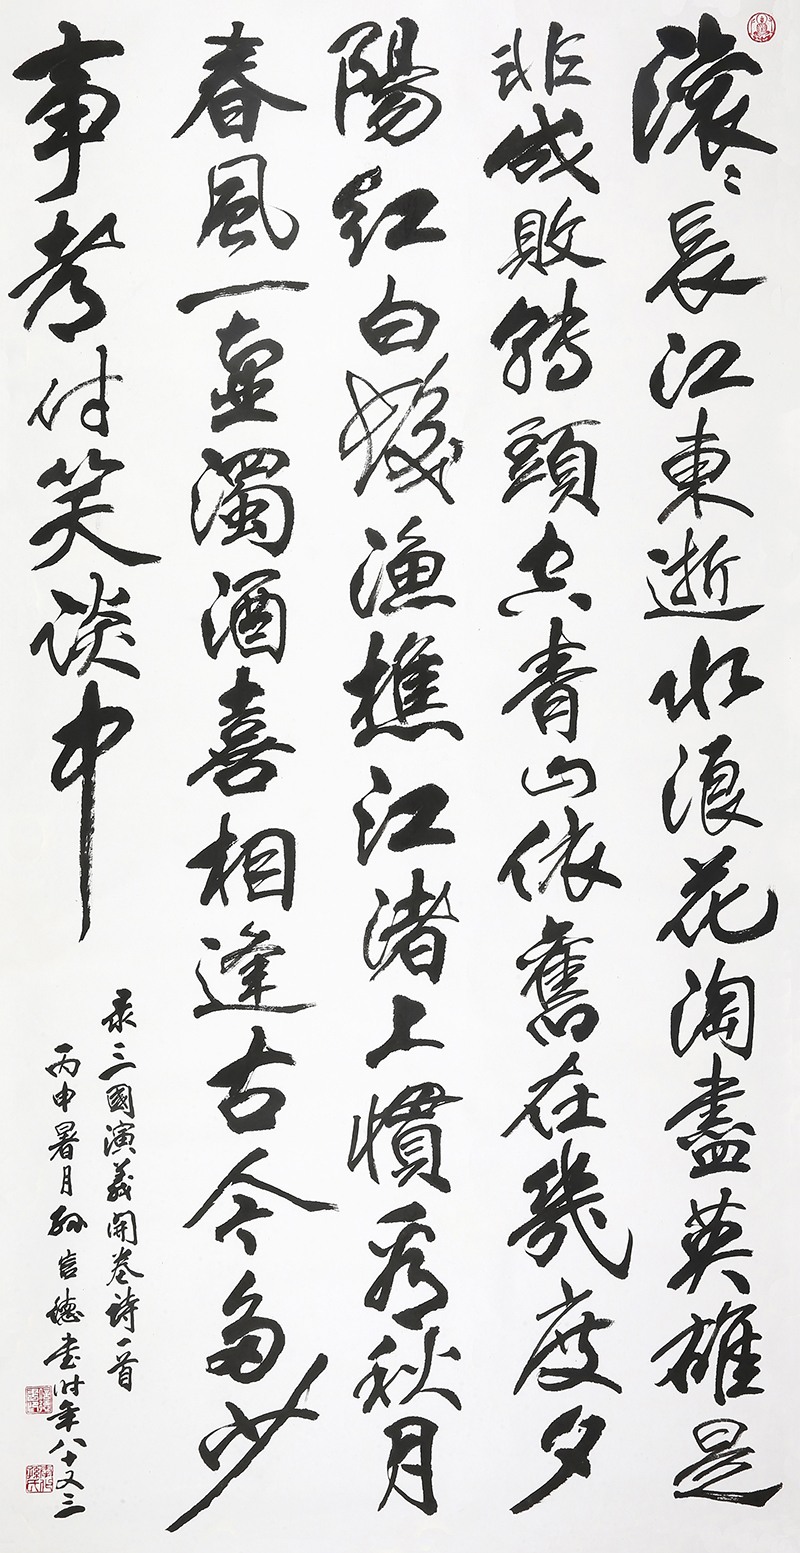 滾〻長江東逝水浪花淘盡英雄是
非成敗轉頭空青山依舊在幾度夕
陽紅白髮漁樵江渚上慣看秋月
春風一壺濁酒喜相逢古今多少
事都付笑谈中
录三國演義開卷詩一首
丙申暑月孙信德书时年八十又三